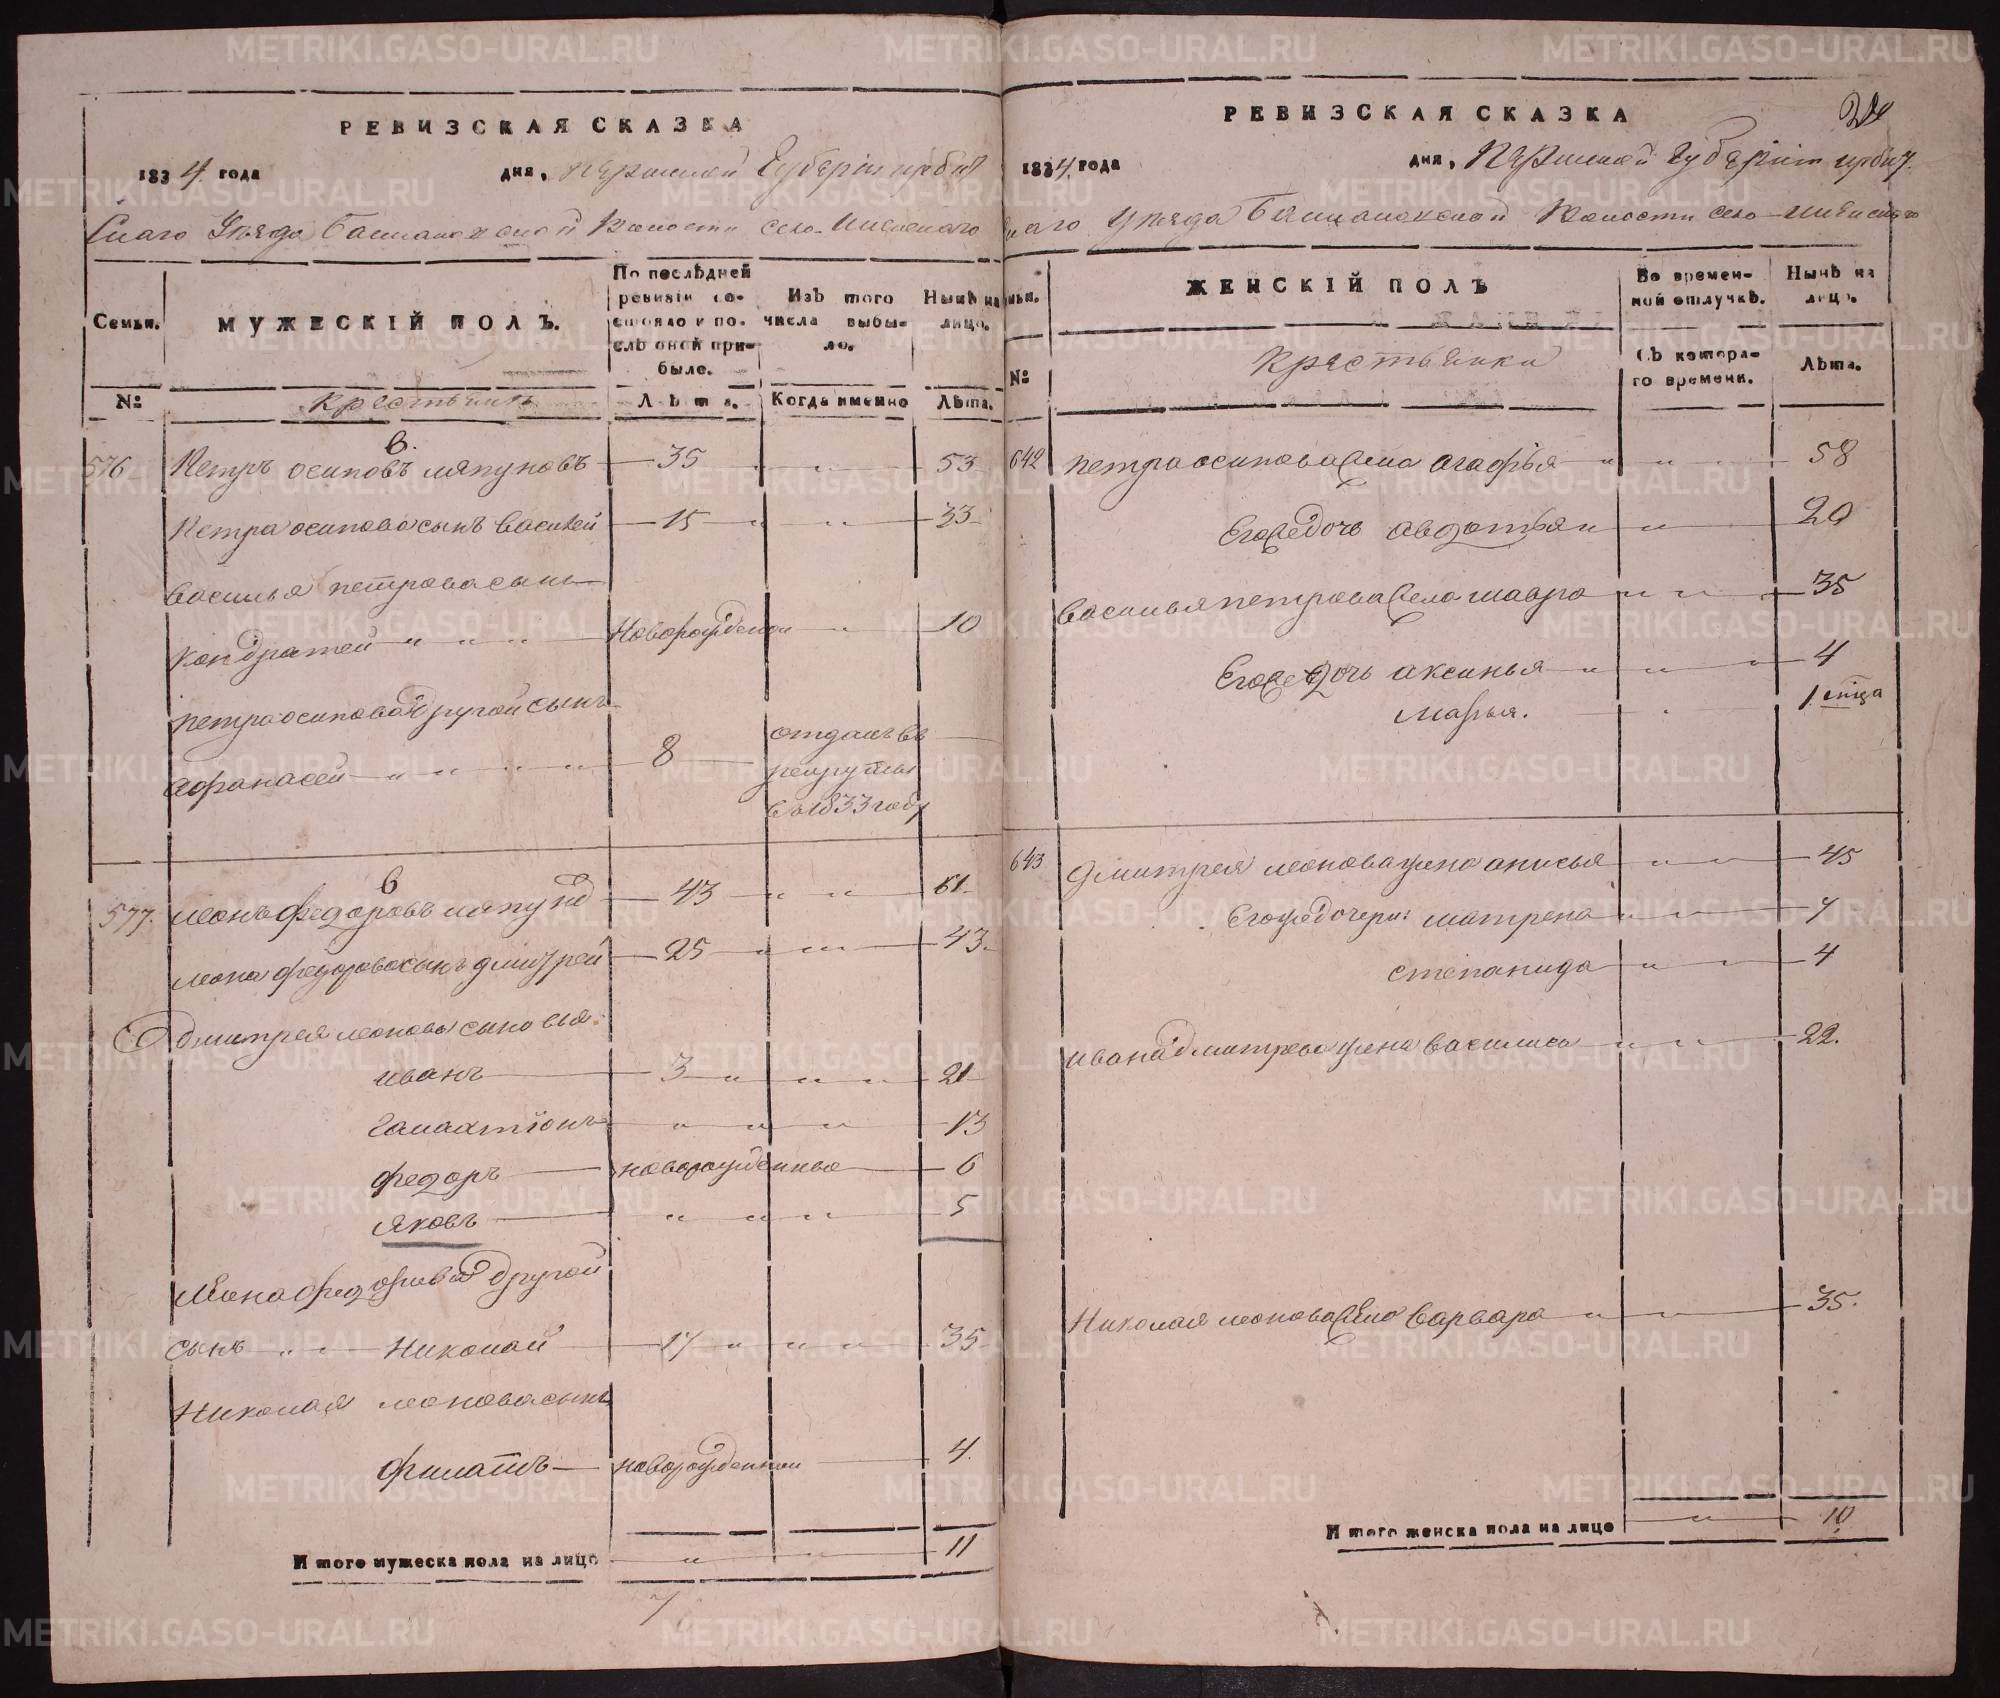 РЕВИЗСКАЯ СКАЗКА
1834 года дня, Пермской Губернiи ирбит
скаго Уѣзда Баишаловской Волости село
Семьи. МУЖЕСКIЙ ПОЛЪ. По послѣдней ревизiи состояло и послѣ оной прибыло. Изъ того числа выбыло. Нынѣ на лицо.
№ крестьянъ Лѣта. Когда именно Лѣта.
в.
576 Петръ осиповъ ляпуновъ 35 " " 53
Петра осипова сынъ василей 15 " " 33
василья петрова сынъ
кондратей " " " новорожденой " 10
петра осипова другой сынъ
афанасей " " " " 8 отданъ въ
рекруты
въ 1833 году
в
577. леонъ федоровъ ляпунов 43 " " 61
леона федорова сынъ дмитрей 25 " " 43.
Дмитрея леонова сыновья.
иванъ 3 " " " 21
галактiонъ " " " 13
федоръ новорожденные 6
яковъ " " " 5
Леона федорова другой
сынъ " " николай 17 " " " 35
николая леонова сынъ
филатъ новорожденной 4.
Итого мужеска пола на лицо " 11
7
РЕВИЗСКАЯ СКАЗКА
1834 года дня, Пермской Губернiи ирбит
скаго Уѣзда Волости село
ЖЕНСКIЙ ПОЛЪ Во временной отлучкѣ. Нынѣ на лицо.
№ Крестьянки Съ котораго времени. Лѣта.
642 петра осипова жена агафья " " " 58
Егоже дочь авдотья " " 20
василья петрова жена мавра " " " 35
Егоже дочь аксинья " " " 4
марья. " 1 мѣсяца
643 дмитрея леонова жена анисья " " 45
Егоже дочери: матрена " " 7
степанида " " " 4
ивана дмитрева жена василиса " " " 22.
николая леонова жена варвара " " 35.
Итого женска пола на лицо " 10
METRIKI.GASO-URAL.RU